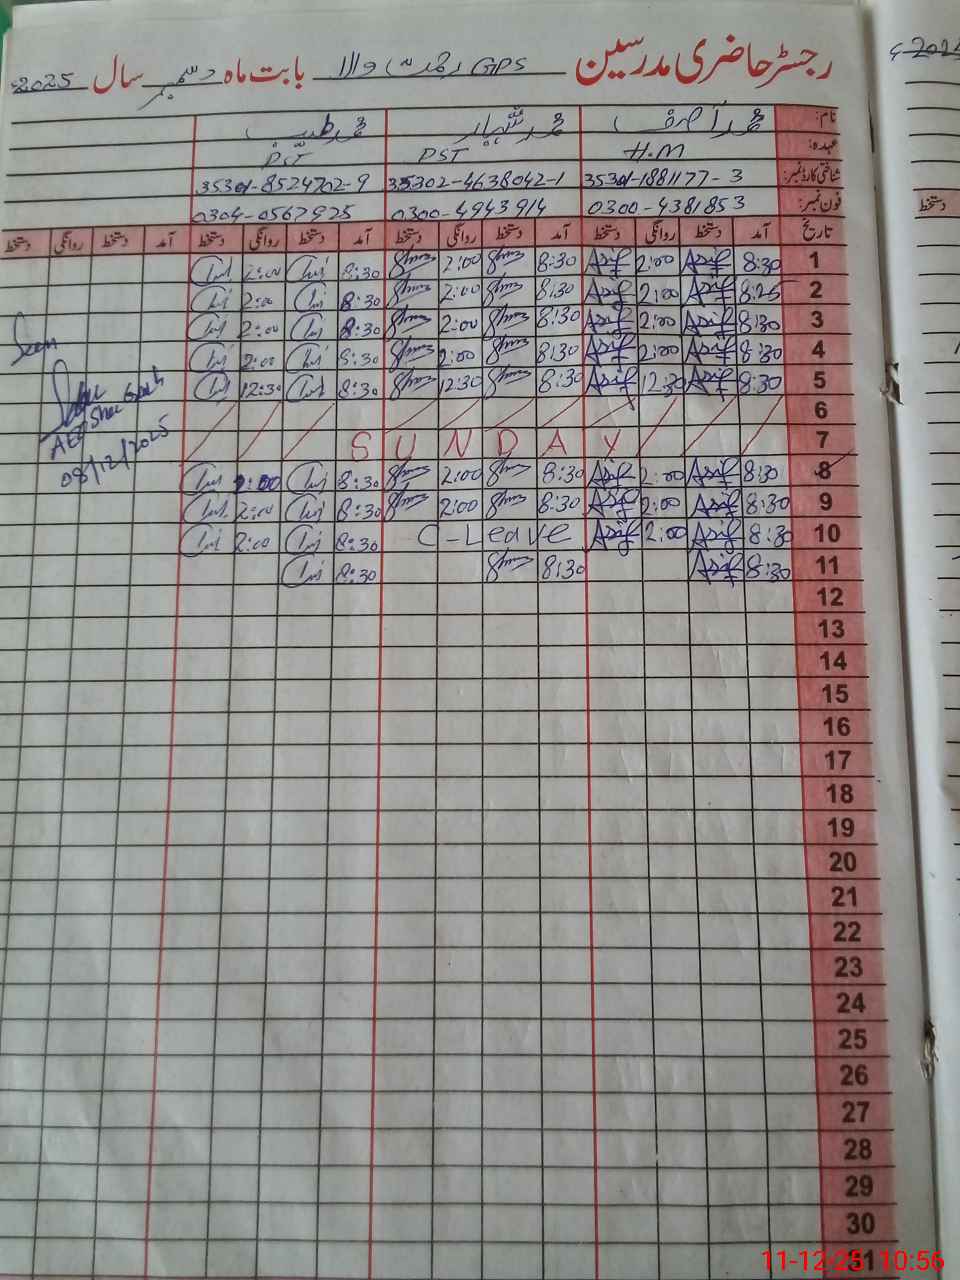 رجسٹر حاضری مدرسین GPS رحمت والا بابت ماہ دسمبر سال 2025ء
نام: محمد آصف محمد شہباز محمد طیب
عہدہ: H.M PST PST
شناختی کارڈ نمبر: 35301-1881177-3 35302-4638042-1 35301-8524702-9
فون نمبر: 0300-4381853 0300-4943914 0304-0567925
تاریخ آمد دستخط روانگی دستخط آمد دستخط روانگی دستخط آمد دستخط روانگی دستخط آمد دستخط روانگی دستخط
1 8:30 Asif 2:00 Asif 8:30 2:00 8:30 2:00
2 8:25 Asif 2:00 Asif 8:30 2:00 8:30 2:00
3 8:30 Asif 2:00 Asif 8:30 2:00 8:30 2:00
4 8:30 Asif 2:00 Asif 8:30 2:00 8:30 2:00
5 8:30 Asif 12:30 Asif 8:30 12:30 8:30 12:30
6
7 SUNDAY
8 8:30 Asif 2:00 Asif 8:30 2:00 8:30 2:00
9 8:30 Asif 2:00 Asif 8:30 2:00 8:30 2:00
10 8:30 Asif 2:00 Asif C-Leave 8:30 2:00
11 8:30 Asif 8:30 8:30
12
13
14
15
16
17
18
19
20
21
22
23
24
25
26
27
28
29
30
31
Seen
AEO
08/12/2025
2025ء
دستخط
11-12-25 10:56